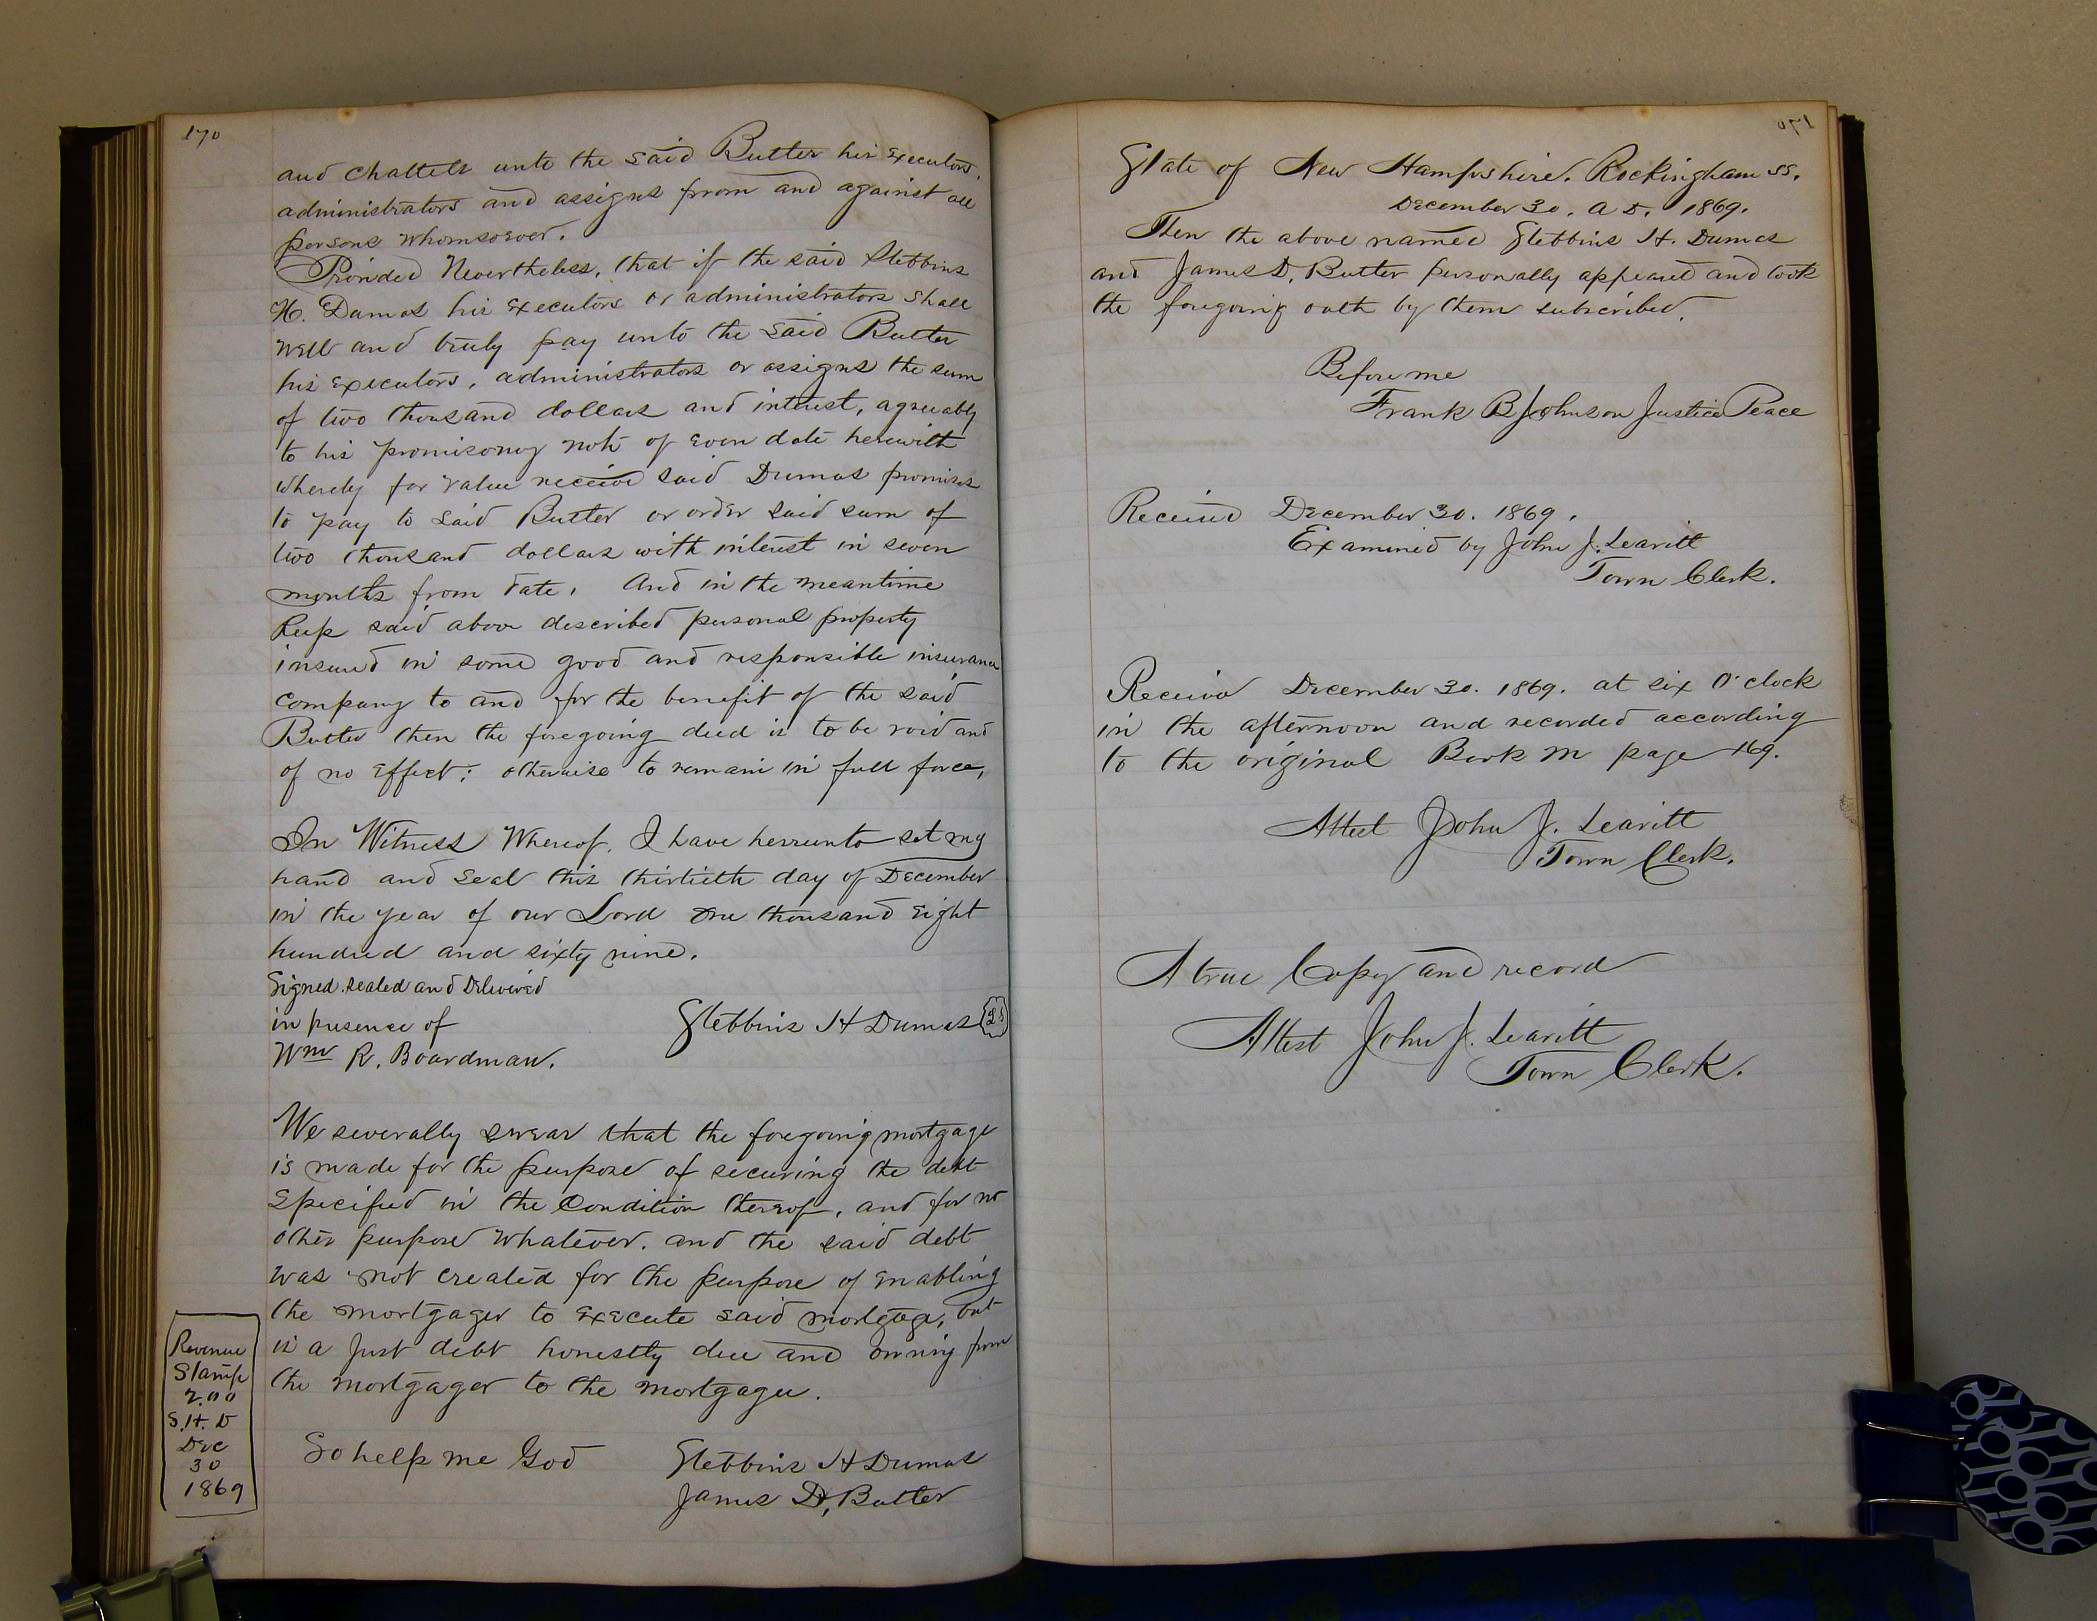 170
and chattels unto the said Butler his executors,
administrators and assigns from and against all
persons whomsoever.
Provided Nevertheless, that if the said Stebbins
H. Dumas his executors or administrators shall
well and truly pay unto the said Butler
his executors, administrators or assigns the sum
of two thousand dollars and interest, agreeably
to his promisory note of even date herewith
whereby for value receive said Dumas promises
to pay to said Butler or order said sum of
two thousand dollars with interest in seven
months from date, And in the meantime
keep said above described personal property
insured in some good and responsible insurance
company to and for the benefit of the said
Butler then the foregoing deed is to be void and
of no effect; otherwise to remain in full force,
In Witness Whereof, I have hereunto set my
hand and seal this thirtieth day of December
in the year of our Lord one thousand eight
hundred and sixty nine.
Signed sealed and Delivered
in presence of
Stebbins H Dumas LS
Wm R. Boardman.
We severally swear that the foregoing mortgage
is made for the purpose of securing the debt
specified in the Condition thereof, and for no
other purpose whatever. and the said debt
was not created for the purpose of enabling
the mortgager to execute said mortgage, but
is a just debt honestly due and owing from
the mortgager to the mortgagee.
So help me God
Stebbins H Dumas
James D, Butler
Revenue
Stamp
2.00
S. H. D
Dec
30
1869
170
State of New Hampshire. Rockingham ss.
December 30. A D. 1869.
Then the above named Stebbins H. Dumas
and James D. Butler personally appeared and took
the foregoing oath by them subscribed.
Before me
Frank B Johnson Justice Peace
Received December 30. 1869.
Examined by John J. Leavitt
Town Clerk.
Received December 30. 1869. at six O'clock
in the afternoon and recorded according
to the original Book M page 169.
Attest John J. Leavitt
Town Clerk.
A true Copy and record
Attest John J. Leavitt
Town Clerk.